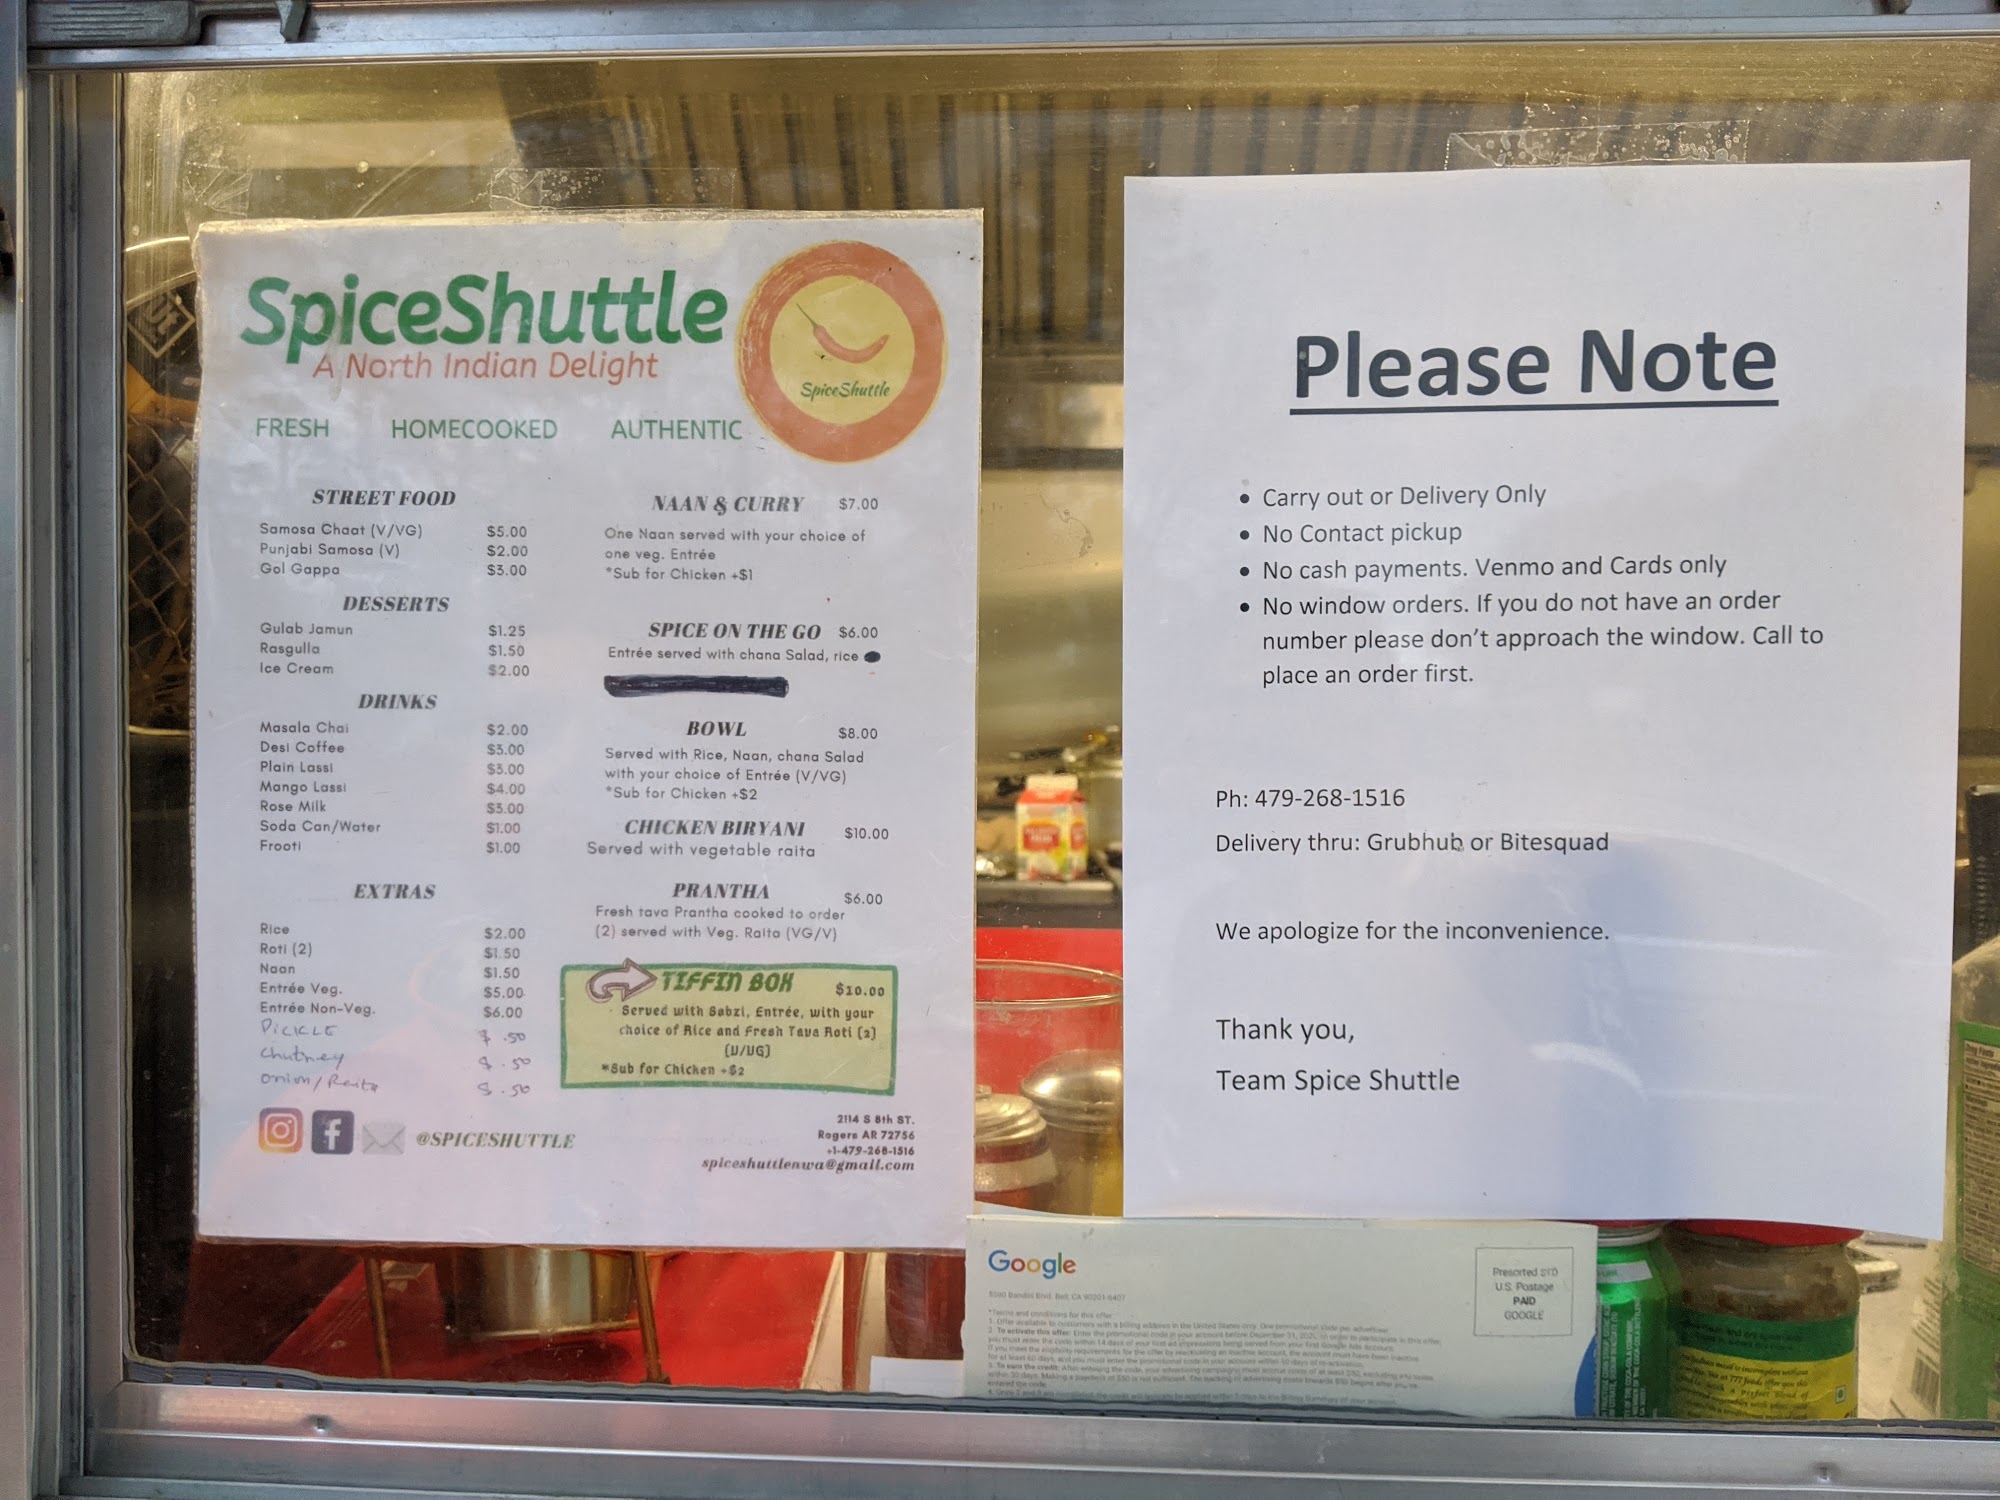 SpiceShuttle
A North Indian Delight
SpiceShuttle
FRESH HOMECOOKED AUTHENTIC
STREET FOOD
Samosa Chaat (V/VG) $5.00
Punjabi Samosa (V) $2.00
Gol Gappa $3.00
DESSERTS
Gulab Jamun $1.25
Rasgulla $1.50
Ice Cream $2.00
DRINKS
Masala Chai $2.00
Desi Coffee $3.00
Plain Lassi $3.00
Mango Lassi $4.00
Rose Milk $3.00
Soda Can/Water $1.00
Frooti $1.00
EXTRAS
Rice $2.00
Roti (2) $1.50
Naan $1.50
Entrée Veg. $5.00
Entrée Non-Veg. $6.00
PICKLE $ .50
Chutney $ .50
Onion/Raita $ .50
@SPICESHUTTLE
NAAN & CURRY $7.00
One Naan served with your choice of
one veg. Entrée
*Sub for Chicken +$1
SPICE ON THE GO $6.00
Entrée served with chana Salad, rice
BOWL $8.00
Served with Rice, Naan, chana Salad
with your choice of Entrée (V/VG)
*Sub for Chicken +$2
CHICKEN BIRYANI $10.00
Served with vegetable raita
PRANTHA $6.00
Fresh tava Prantha cooked to order
(2) served with Veg. Raita (VG/V)
TIFFIN BOX $10.00
Served with Sabzi, Entrée, with your
choice of Rice and Fresh Tava Roti (2)
(V/VG)
*Sub for Chicken +$2
2114 S 8th ST.
Rogers AR 72756
+1-479-268-1516
spiceshuttlenwa@gmail.com
Please Note
• Carry out or Delivery Only
• No Contact pickup
• No cash payments. Venmo and Cards only
• No window orders. If you do not have an order
number please don't approach the window. Call to
place an order first.
Ph: 479-268-1516
Delivery thru: Grubhub or Bitesquad
We apologize for the inconvenience.
Thank you,
Team Spice Shuttle
Google
Presorted STD
U.S. Postage
PAID
GOOGLE
*Terms and conditions for this offer